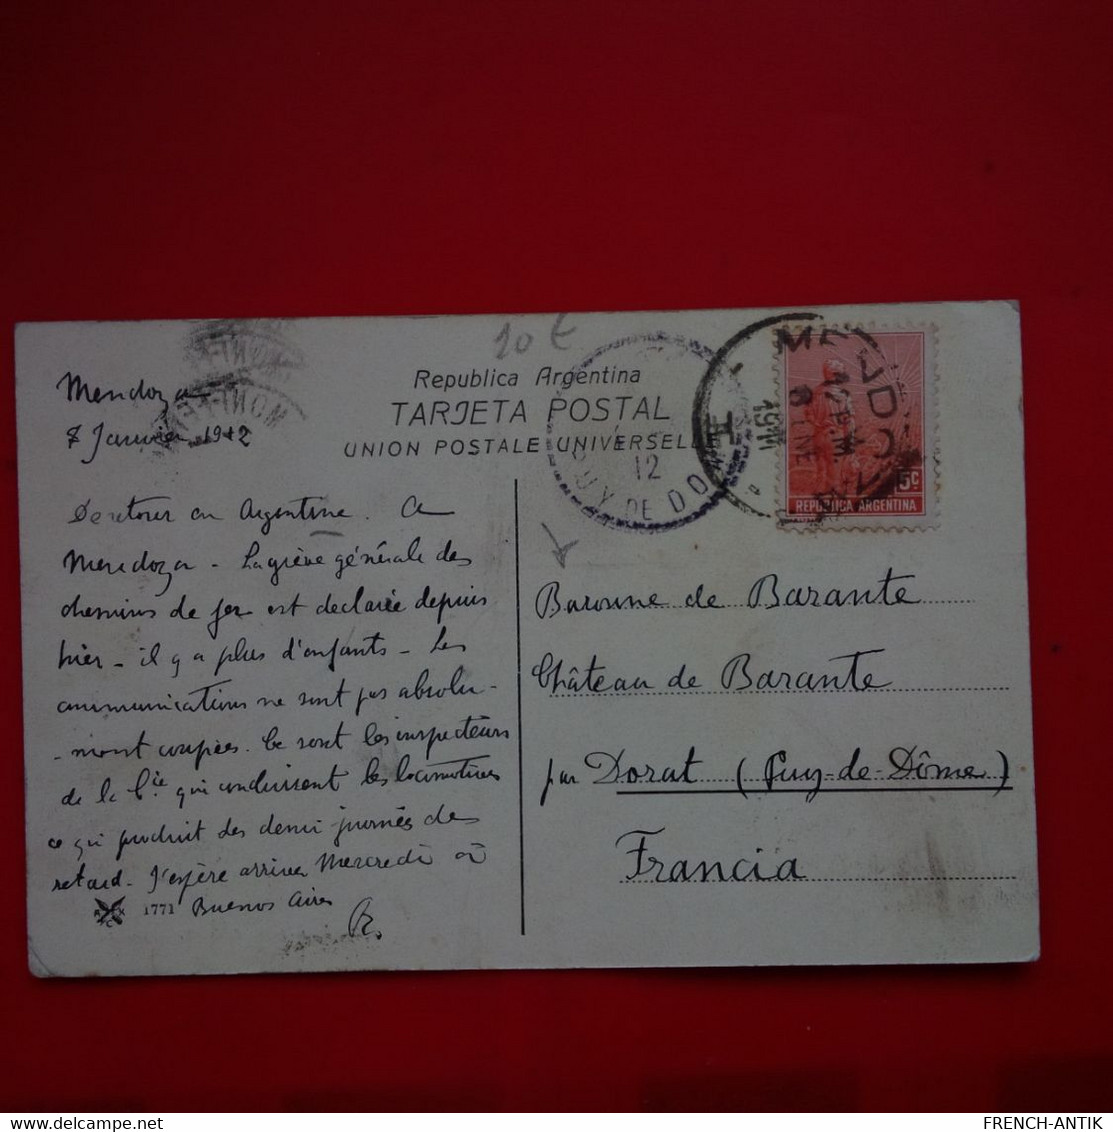 20 €
Republica Argentina
TARJETA POSTAL
UNION POSTALE UNIVERSELLE
12
PUY DE DOME
MENDOZA
8 ENE
1912
5c
REPUBLICA ARGENTINA
Mendoza
8 Janvier 1912
De retour en Argentine. a
Mendoza - La grève générale des
chemins de fer est declarée depuis
hier - il y a plus d'enfants - Les
communications ne sont pas absolu-
-ment coupées. Ce sont les inspecteurs
de la Cie qui conduisent les locomotives
ce qui produit des demi journées de
retard. J'espère arriver Mercredi à
Buenos Aires
R.
1771
Baronne de Barante
Château de Barante
par Dorat (Puy-de-Dôme)
Francia
FRENCH-ANTIK